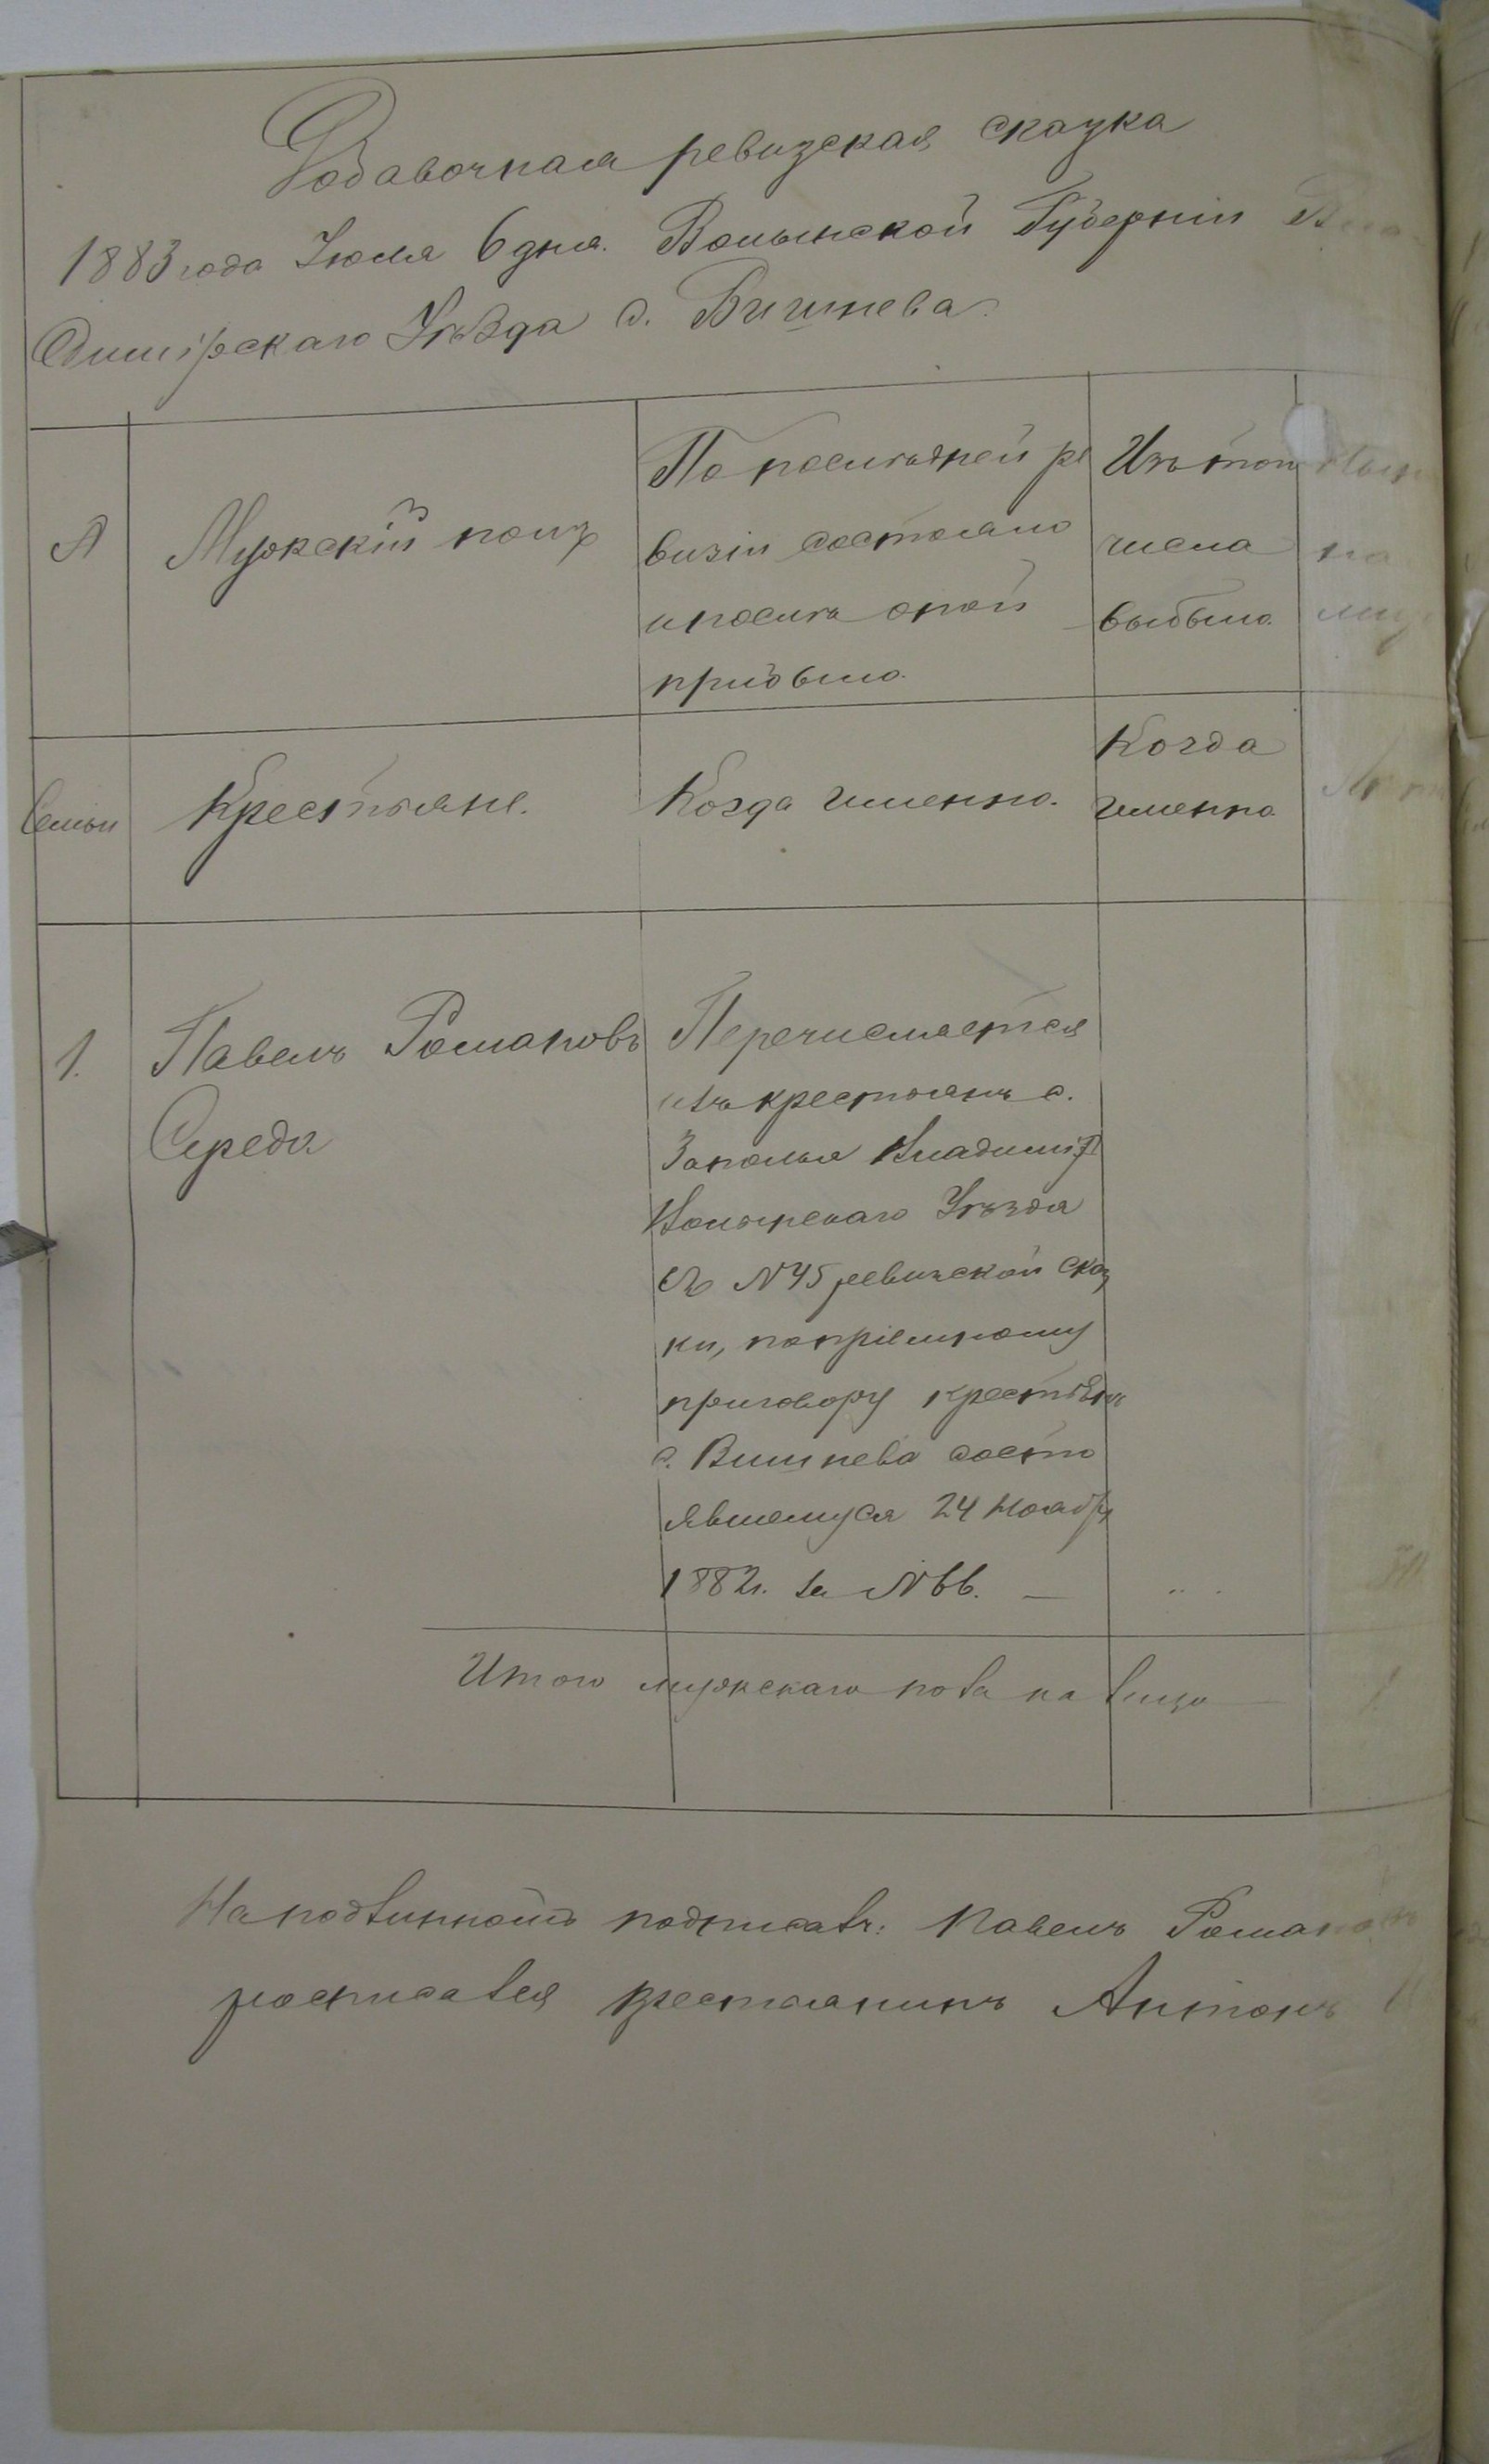 Добавочная ревизская сказка
1883 года Июля 6 дня. Волынской Губерніи Вла
димірскаго Уѣзда с. Вишнева.
Мужскій полъ
По послѣдней ре
визіи состояло
и послѣ оной
прибыло.
Изъ того
числа
выбыло.
на
Семьи
Крестьяне.
Когда именно.
Когда
именно.
1.
Павелъ Романовъ
Середа
Перечисляется
изъ крестьянъ с.
Заполья Владимір
Волынскаго Уѣзда
съ N 45 ревизской сказ
ки, по пріемному
приговору крестьянъ
с. Вишнева состо
явшемуся 24 Ноября
1882 г. за N 66. —
Итого мужскаго пола на лицо — 1
На подлинной подписалъ: Павелъ Романовъ
росписался крестьянинъ Антонъ